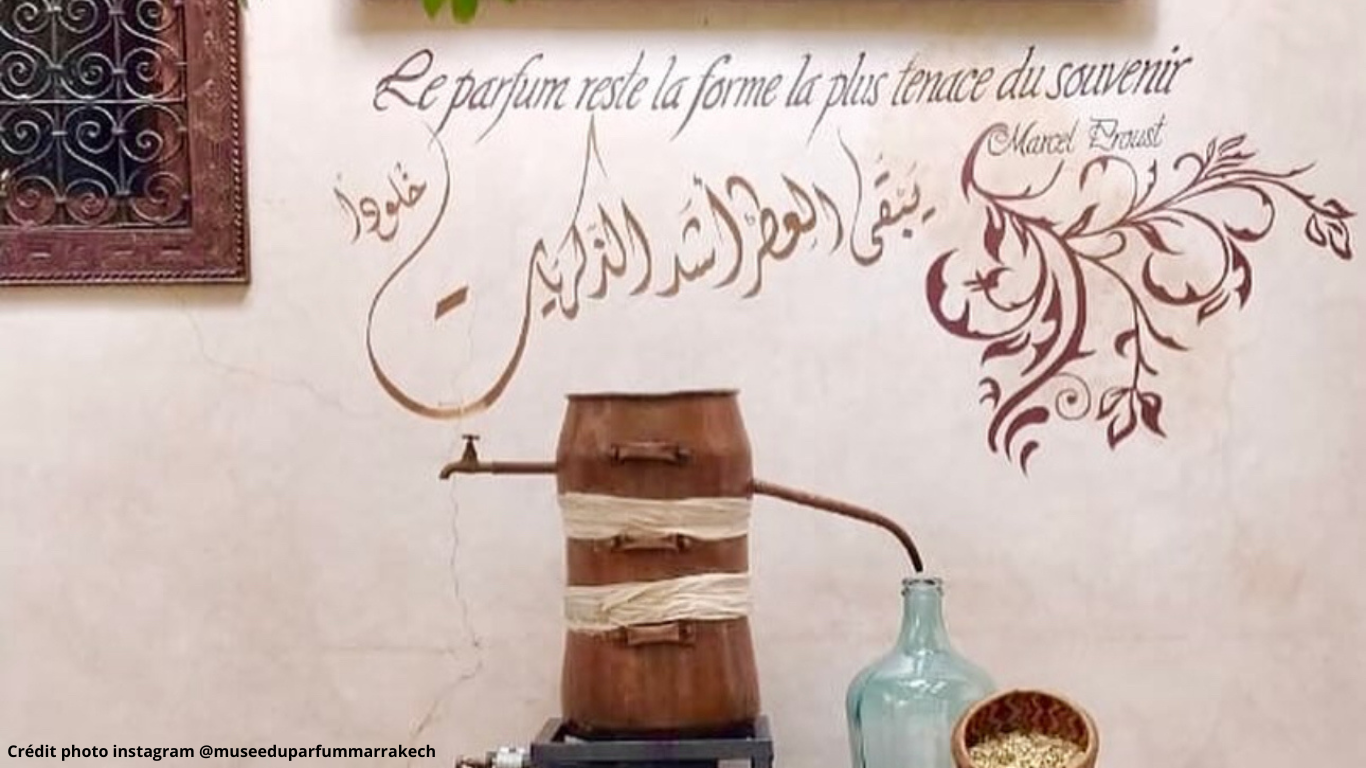 Le parfum reste la forme la plus tenace du souvenir
Marcel Proust
يَبْقَى العِطْرُ أشَد الذّكريات خُلودًا
Crédit photo instagram @museeduparfummarrakech